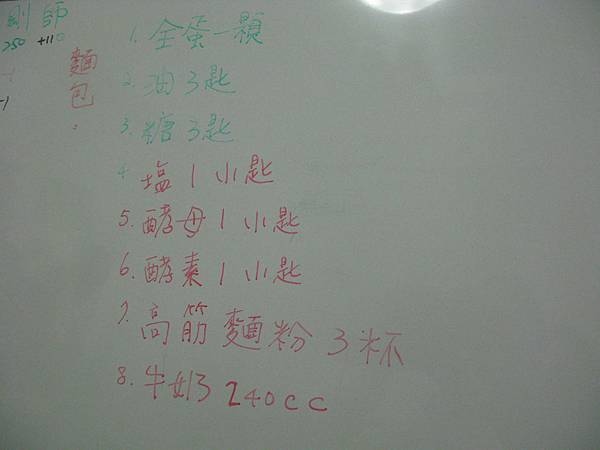 剛 師
250 +110
麵包。
1. 全蛋一顆
2. 油 3匙
3. 糖 3匙
4. 塩 1 小匙
5. 酵母 1 小匙
6. 酵素 1 小匙
7. 高筋麵粉 3杯
8. 牛奶 240cc